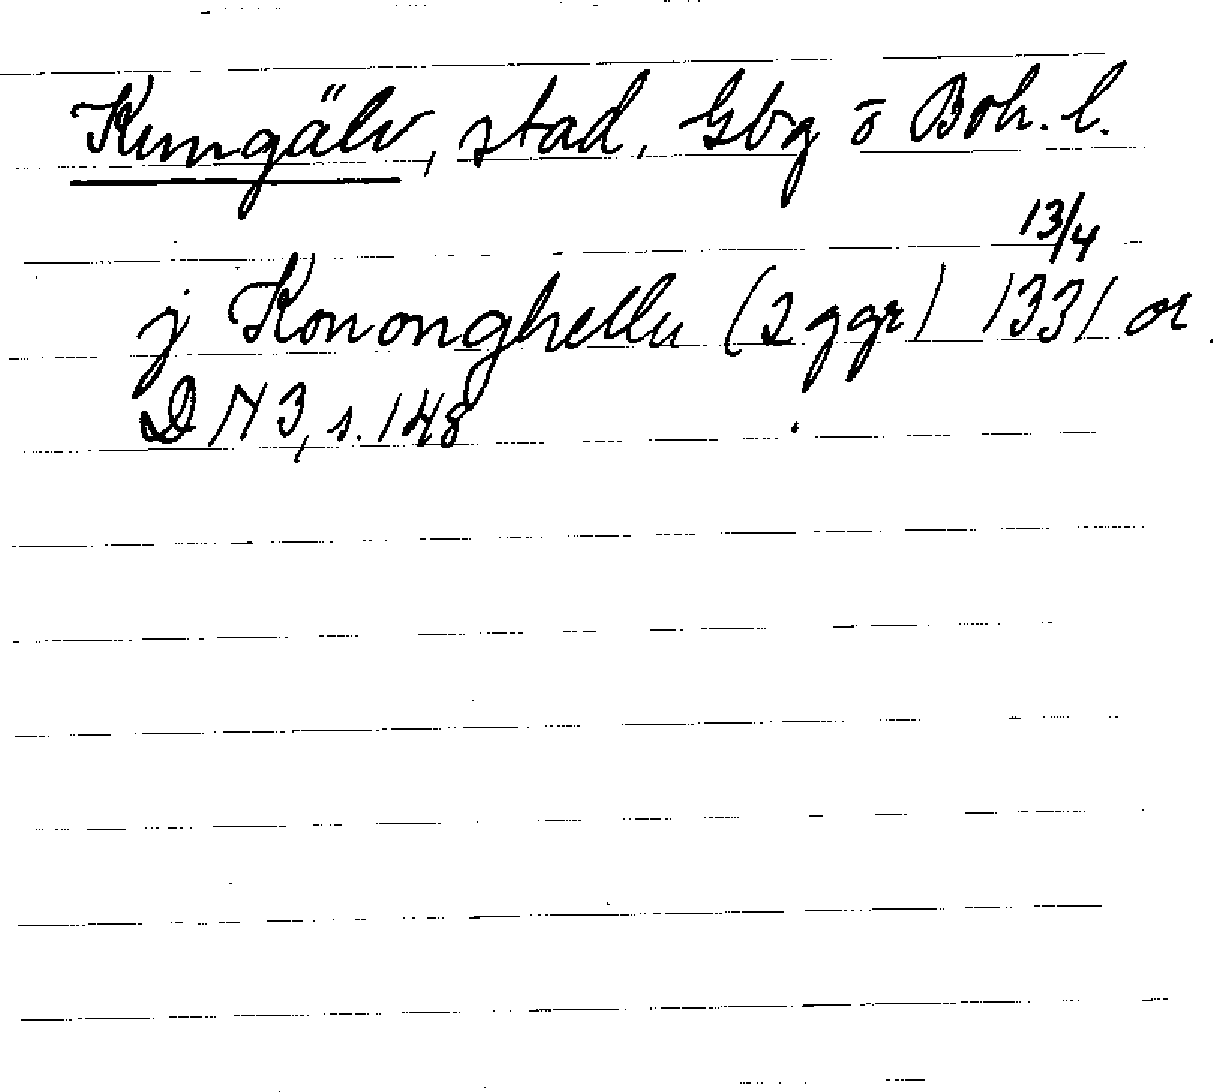 Kungälv, stad, Gbg o Boh. l.
j Kononghellu (2 ggr) 13/4 1331 or.
DN 3, s. 148